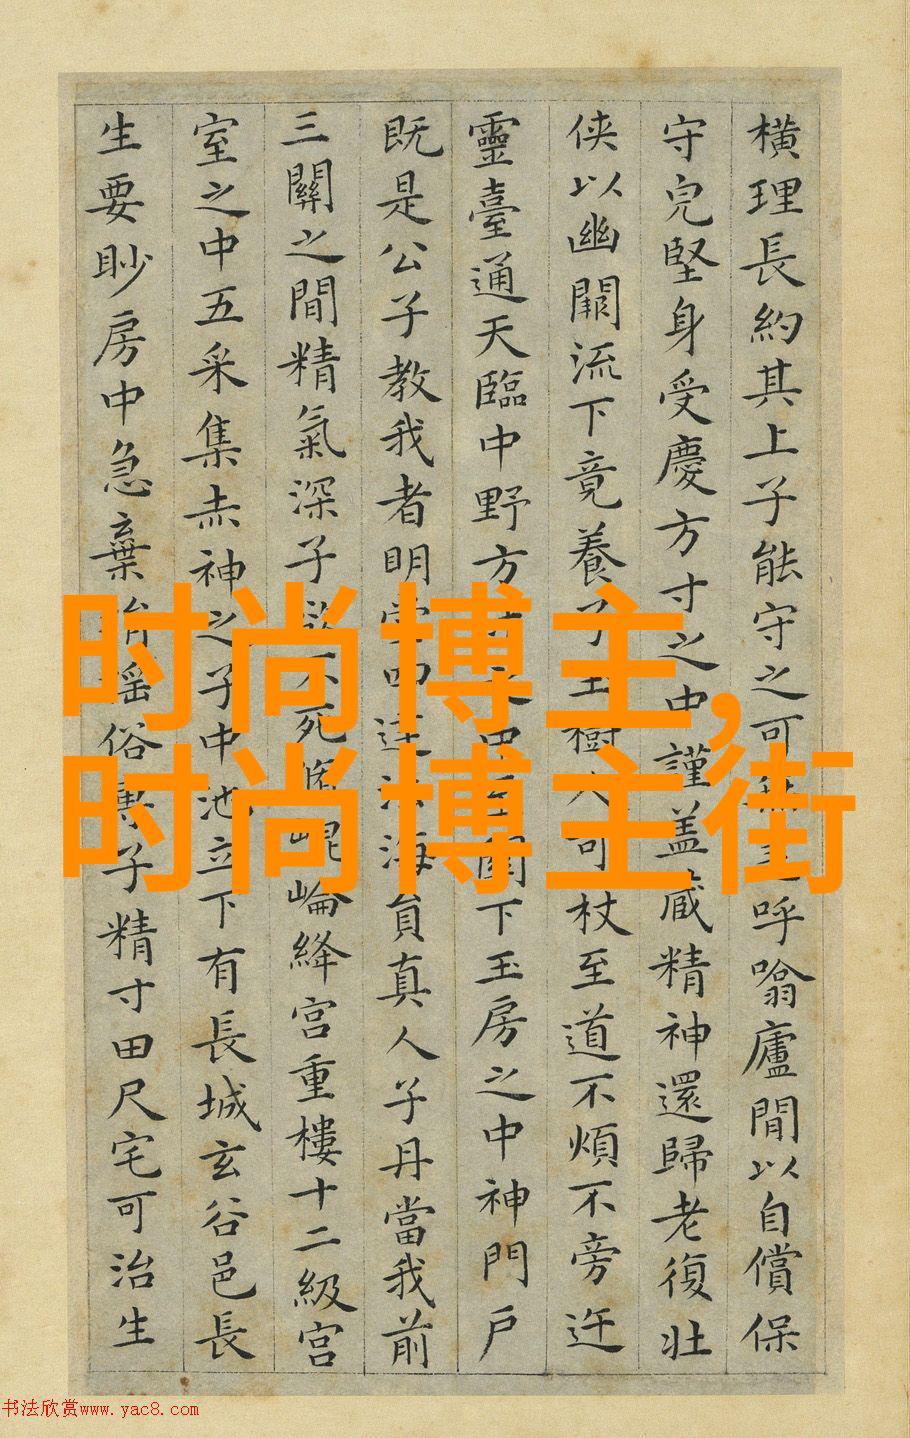 横理長約其上子能守之可無 呼噏廬間以自償保
守皃堅身受慶方寸之中謹盖蔵精神還歸老復壮
侠以幽闕流下竟養子玉樹人可杖至道不煩不旁迕
靈臺通天臨中野方寸 下玉房之中神門戶
既是公子教我者明堂四達法海員真人子丹當我前
三關之間精氣深子欲不死脩崐崘絳宫重樓十二級宫
室之中五采集赤神之子中池立下有長城玄谷邑長
生要眇房中急棄 俗專子精寸田尺宅可治生
时尚博主,
时尚博主街
书法欣赏www.yac8.com